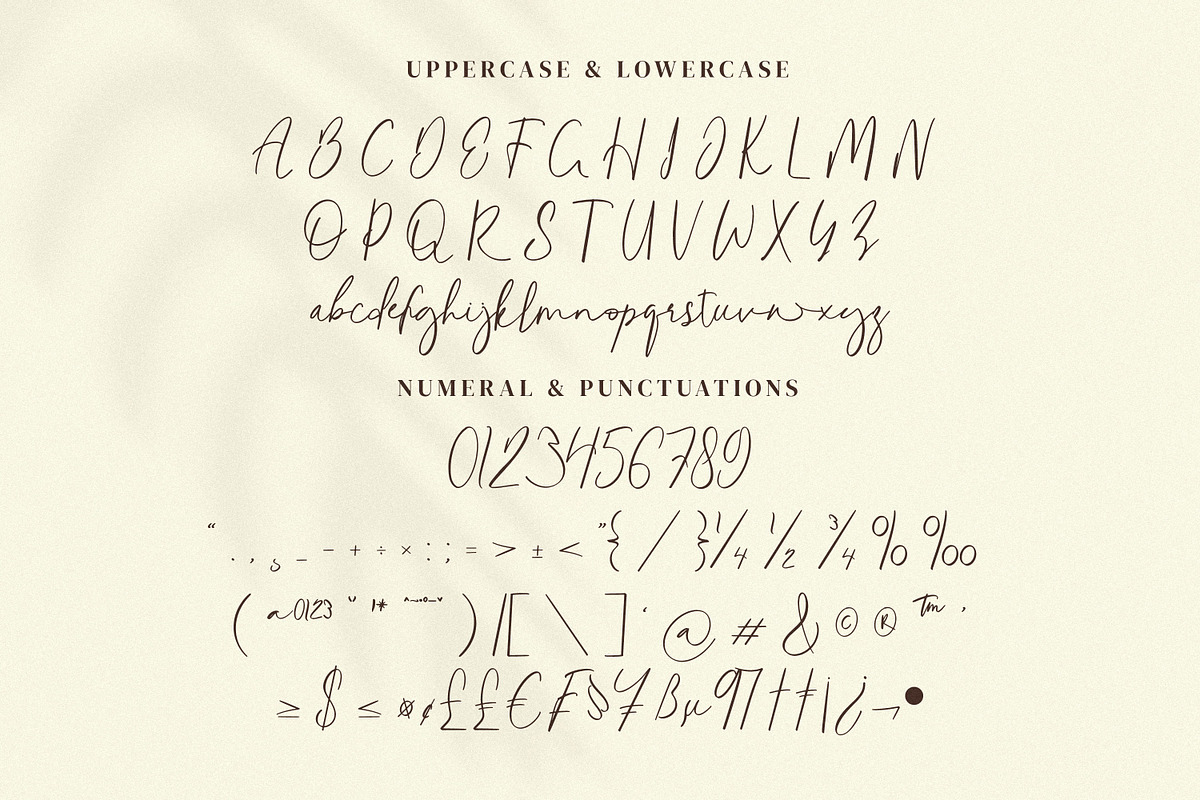 UPPERCASE & LOWERCASE
A B C D E F G H I J K L M N
O P Q R S T U V W X Y Z
abcdefghijklmnopqrstuvwxyz
NUMERAL & PUNCTUATIONS
0123456789
“ . , ¸ _ − + ÷ × : ; = > ± < ” { / } ¼ ½ ¾ % ‰
( ª º ¹ ² ³ " ' * ^ ~ ¨ ° ¯ ˘ ) | [ \ ] ‘ @ # & © ® ™ ’
≥ $ ≤ ¤ ¢ £ ₤ € ₣ § ¥ ß µ ¶ † ‡ ¡ ¿ ¬ •